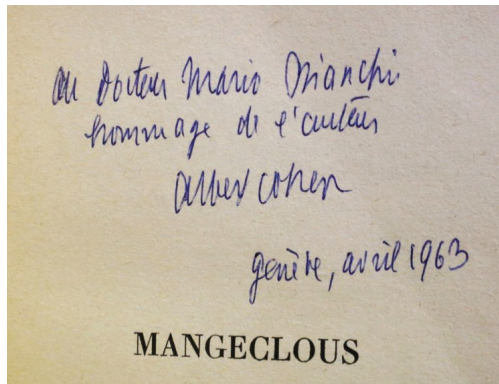 au Docteur Mario Bianchi
hommage de l'auteur
Albert Cohen
genève, avril 1963
MANGECLOUS